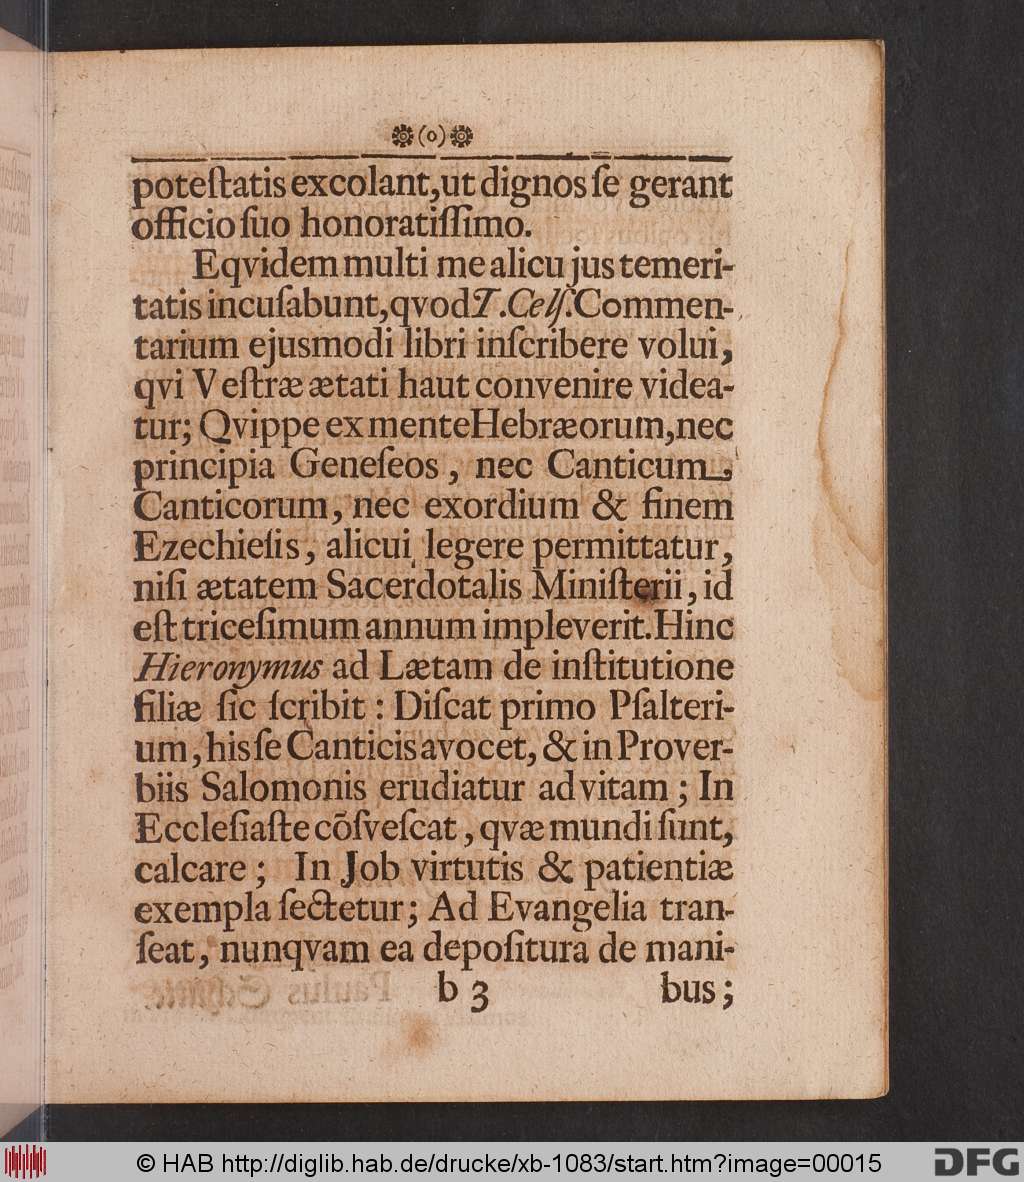 ❁(o)❁
poteſtatis excolant, ut dignos ſe gerant
officio ſuo honoratiſſimo.
Eqvidem multi me alicujus temeri-
tatis incuſabunt, qvod T. Celſ. Commen-
tarium ejusmodi libri inſcribere volui,
qvi Veſtræ ætati haut convenire videa-
tur; Qvippe ex mente Hebræorum, nec
principia Geneſeos, nec Canticum
Canticorum, nec exordium & finem
Ezechielis, alicui legere permittatur,
niſi ætatem Sacerdotalis Miniſterii, id
eſt triceſimum annum impleverit. Hinc
Hieronymus ad Lætam de inſtitutione
filiæ ſic ſcribit: Diſcat primo Pſalteri-
um, his ſe Canticis avocet, & in Prover-
biis Salomonis erudiatur ad vitam; In
Eccleſiaſte cõſveſcat, qvæ mundi ſunt,
calcare; In Job virtutis & patientiæ
exempla ſectetur; Ad Evangelia tran-
ſeat, nunqvam ea depoſitura de mani-
b 3 bus;
© HAB http://diglib.hab.de/drucke/xb-1083/start.htm?image=00015
DFG